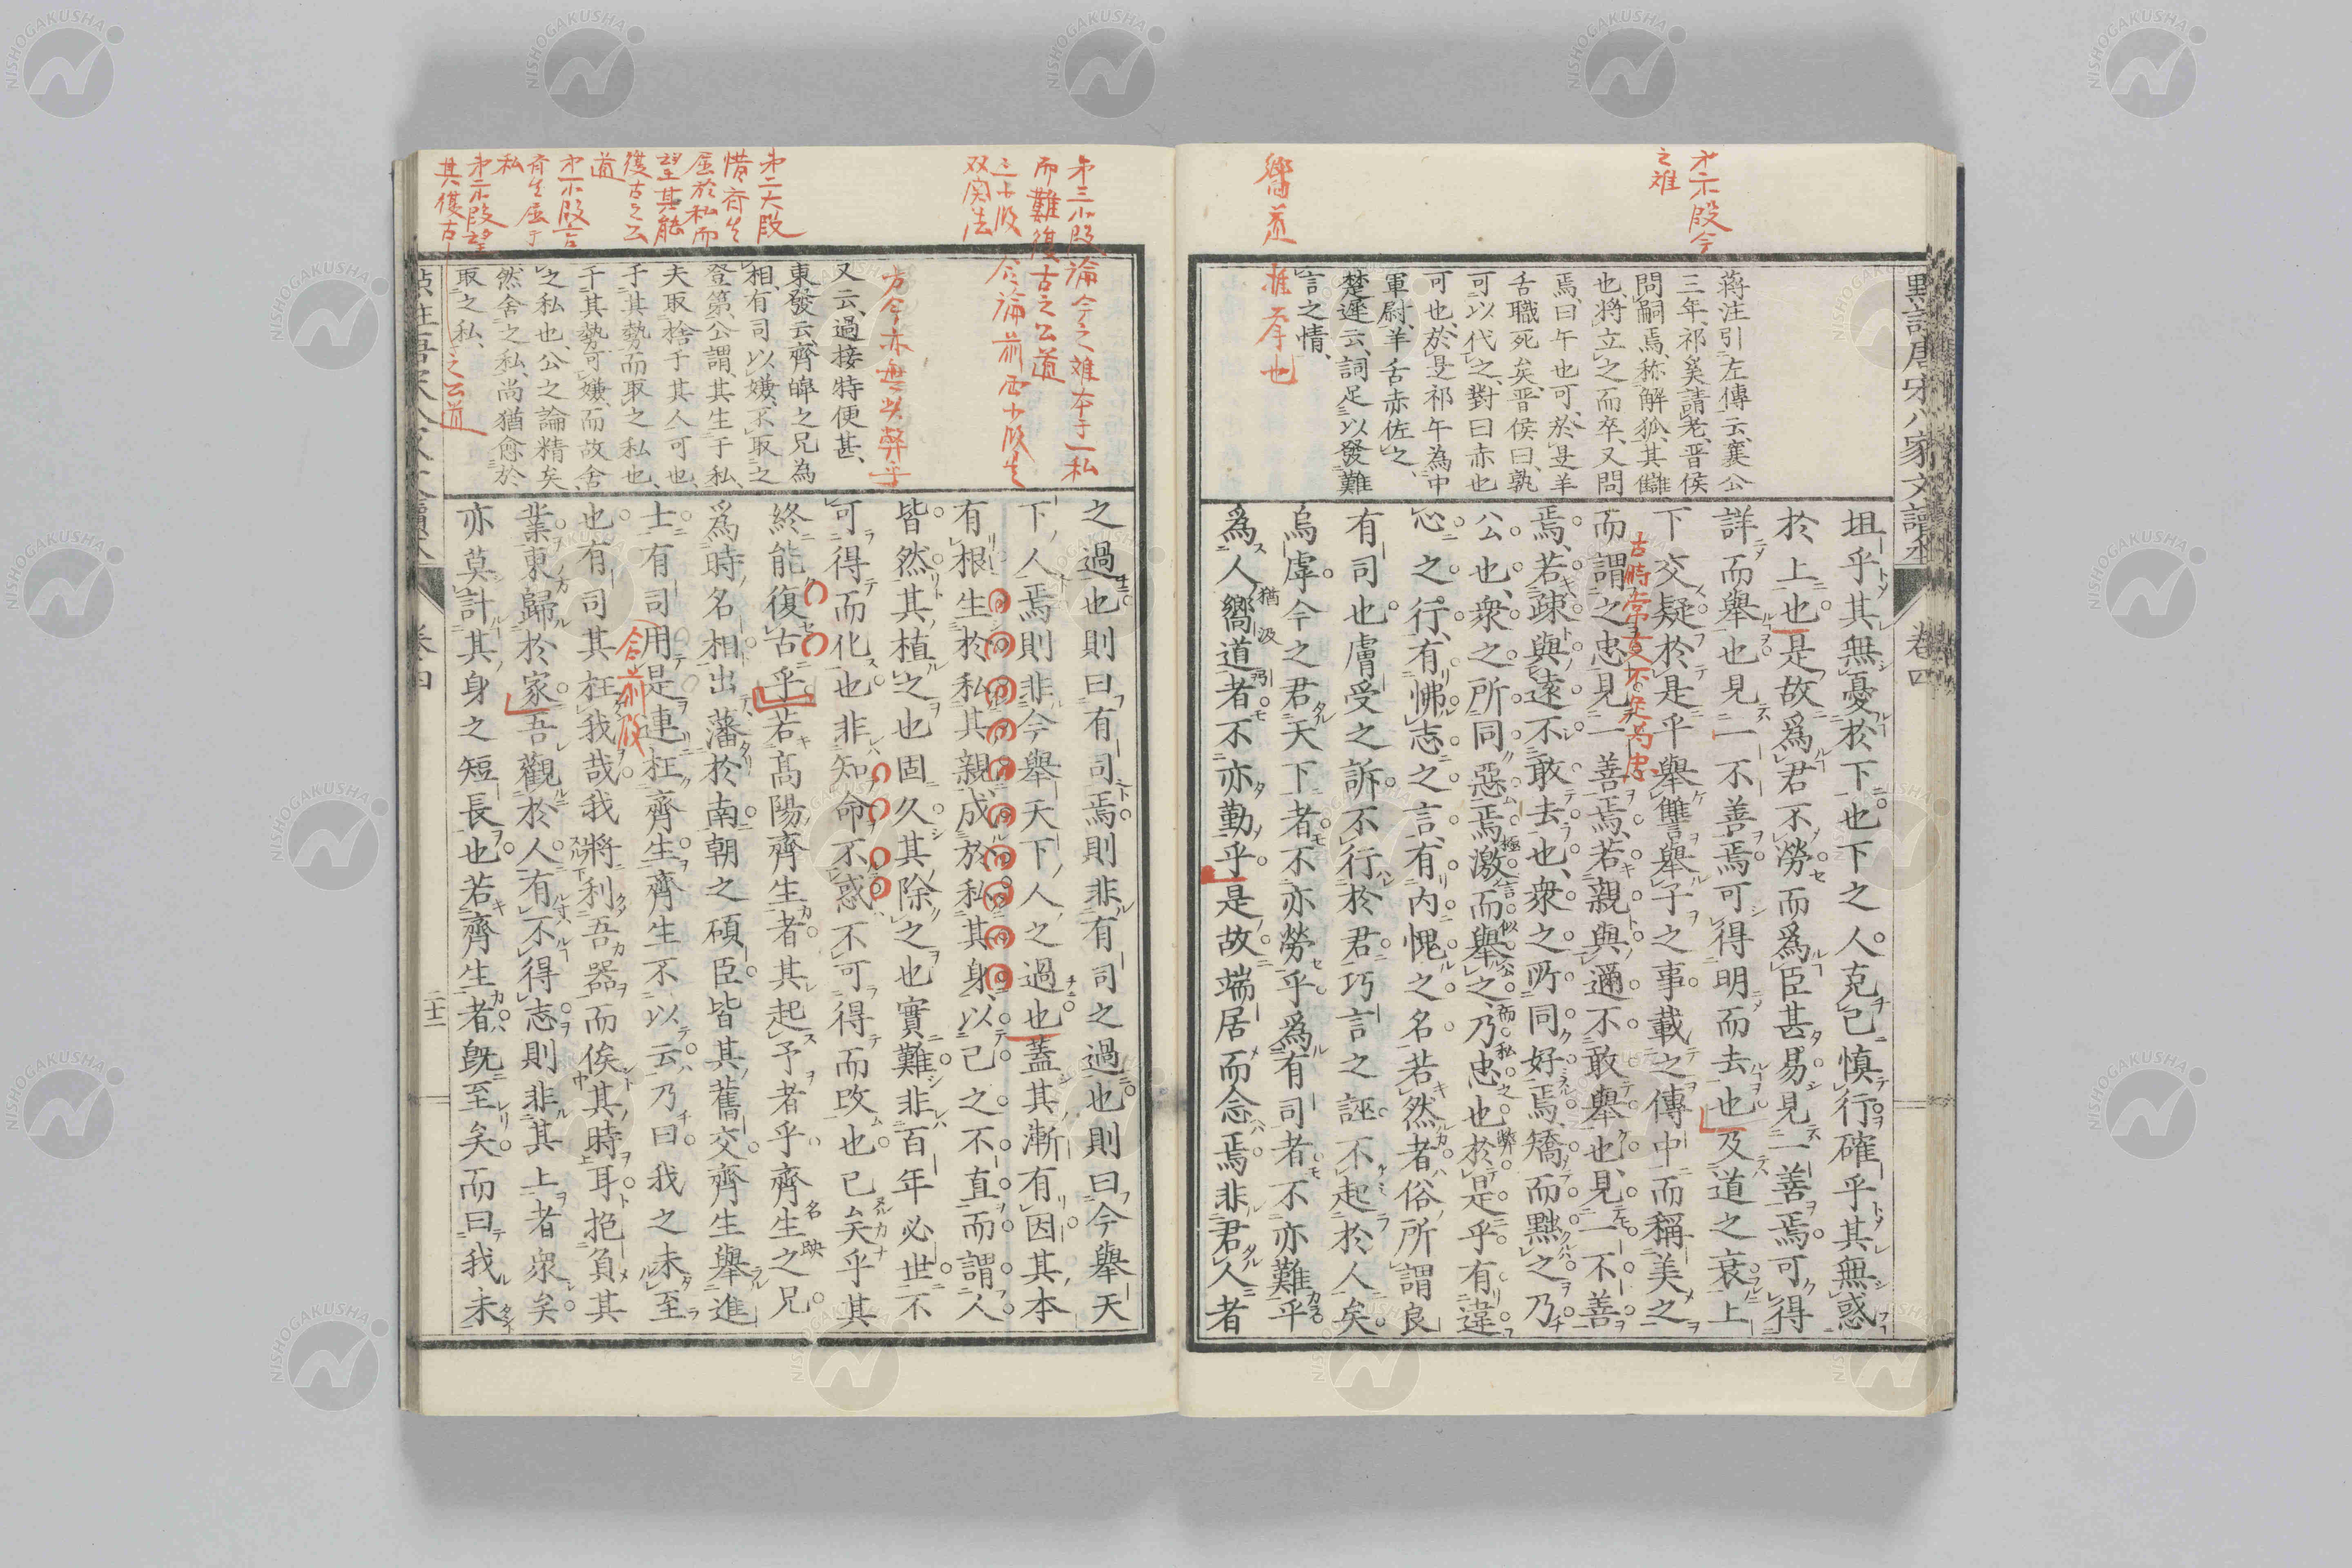 㸃註唐宋八家文讀本 卷四
㐧二小段今
之难
嚮道
推奉也
蔣注引左傳云襄公
三年祁奚請老晋侯
問嗣焉称解狐其讎
也將立之而卒又問
焉曰午也可於是羊
舌職死矣晋侯曰孰
可以代之對曰赤也
可也於是祁午為中
軍尉羊舌赤佐之
楚遲云詞足以發難
言之情
坦乎其無憂於下也下之人克己慎行確乎其無惑
於上也是故爲君不勞而爲臣甚易見一善焉可得
詳而舉也見一不善焉可得明而去也及道之衰上
下交疑於是乎舉讐舉子之事載之傳中而稱美之
而謂之忠見一善焉若親與邇不敢舉也見一不善
焉若疎與遠不敢去也衆之所同好焉矯而黜之乃
公也衆之所同惡焉激而舉之乃忠也於是乎有違
心之行有怫志之言有内愧之名若然者俗所謂良
有司也膚受之訴不行於君巧言之誣不起於人矣
烏虖今之君天下者不亦勞乎爲有司者不亦難乎
爲人嚮道者不亦勤乎是故端居而念焉非君人者
㐧三小段論今之难本于一私
而難復古之公道
三小段
双関法
合論前两小段生
方今亦無此弊乎
㐧二大段
惜齊生
屈於私而
望其能
復古之公
道
㐧一小段言
齊生屈于
私
㐧二小段望
其復古
之公道
又云過接特便甚
東發云齊皥之兄為
相有司以嫌不取之
登第公謂其生于私
夫取捨于其人可也
于其勢而取之私也
于其勢可嫌而故舍
之私也公之論精矣
然舍之私尚猶愈於
取之私
之過也則曰有司焉則非有司之過也則曰今舉天
下人焉則非今舉天下人之過也蓋其漸有因其本
有根生於私其親成於私其身以己之不直而謂人
皆然其植之也固久其除之也實難非百年必世不
可得而化也非知命不惑不可得而改也已矣乎其
終能復古乎若髙陽齊生者其起予者乎齊生之兄
爲時名相出藩於南朝之碩臣皆其舊交齊生舉進
士有司用是連枉齊生齊生不以云乃曰我之未至
也有司其枉我哉我將利吾器而俟其時耳抱負其
業東歸於家吾觀於人有不得志則非其上者衆矣
亦莫計其身之短長也若齊生者旣至矣而曰我未
合前段